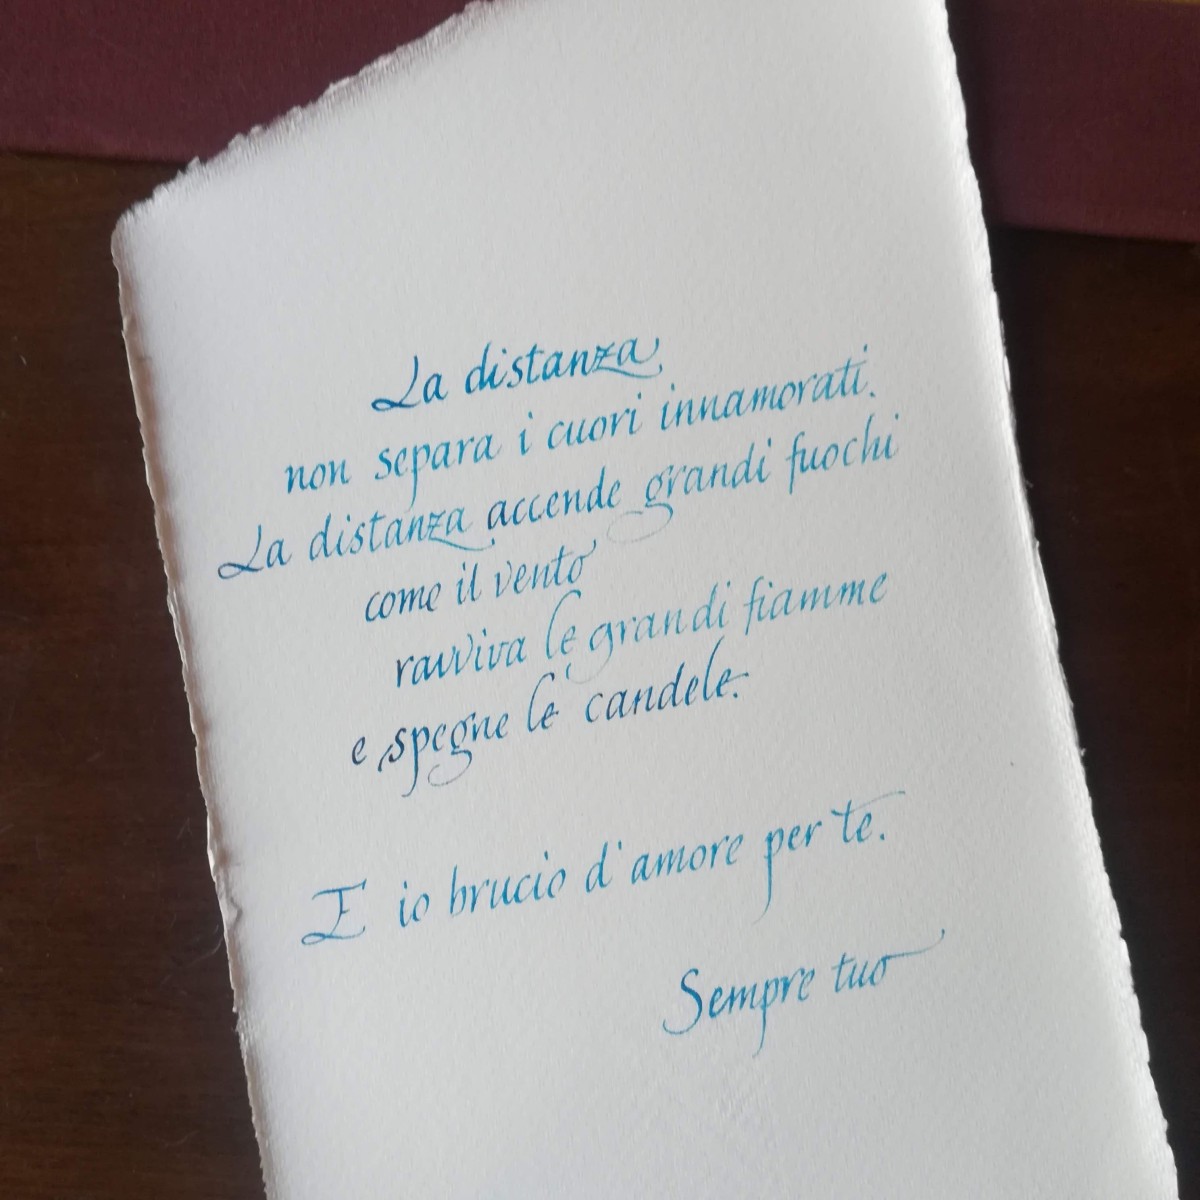 La distanza
non separa i cuori innamorati.
La distanza accende grandi fuochi
come il vento
ravviva le grandi fiamme
e spegne le candele.
E io brucio d'amore per te.
Sempre tuo